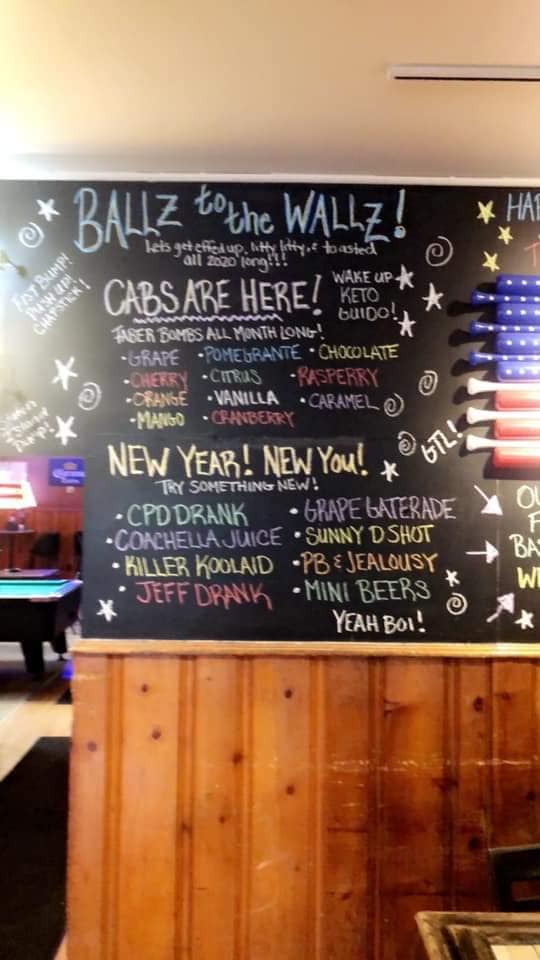 BALLZ to the WALLZ!
lets get effed up, litty litty, & toasted
all 2020 long!!!
FIST BUMP!
PUSH UP!
CHAPSTICK!
CABS ARE HERE!
WAKE UP
KETO
GUIDO!
JABER BOMBS ALL MONTH LONG!
• GRAPE • POMEGRANTE • CHOCOLATE
• CHERRY • CITRUS • RASPERRY
• ORANGE • VANILLA • CARAMEL
• MANGO • CRANBERRY
GTL!
NEW YEAR! NEW YOU!
TRY SOMETHING NEW!
• CPD DRANK • GRAPE GATERADE
• COACHELLA JUICE • SUNNY D SHOT
• KILLER KOOLAID • PB & JEALOUSY
• JEFF DRANK • MINI BEERS
YEAH BOI!
HAP
T
OU
F
BAS
WI
Corona